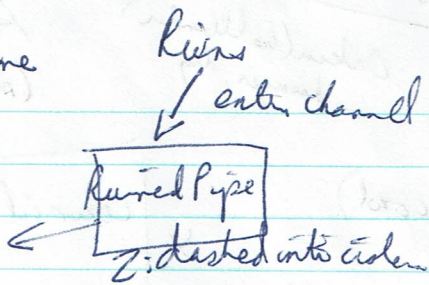 Ruins
enter channel
Ruined Pipe
2: dashed into cistern